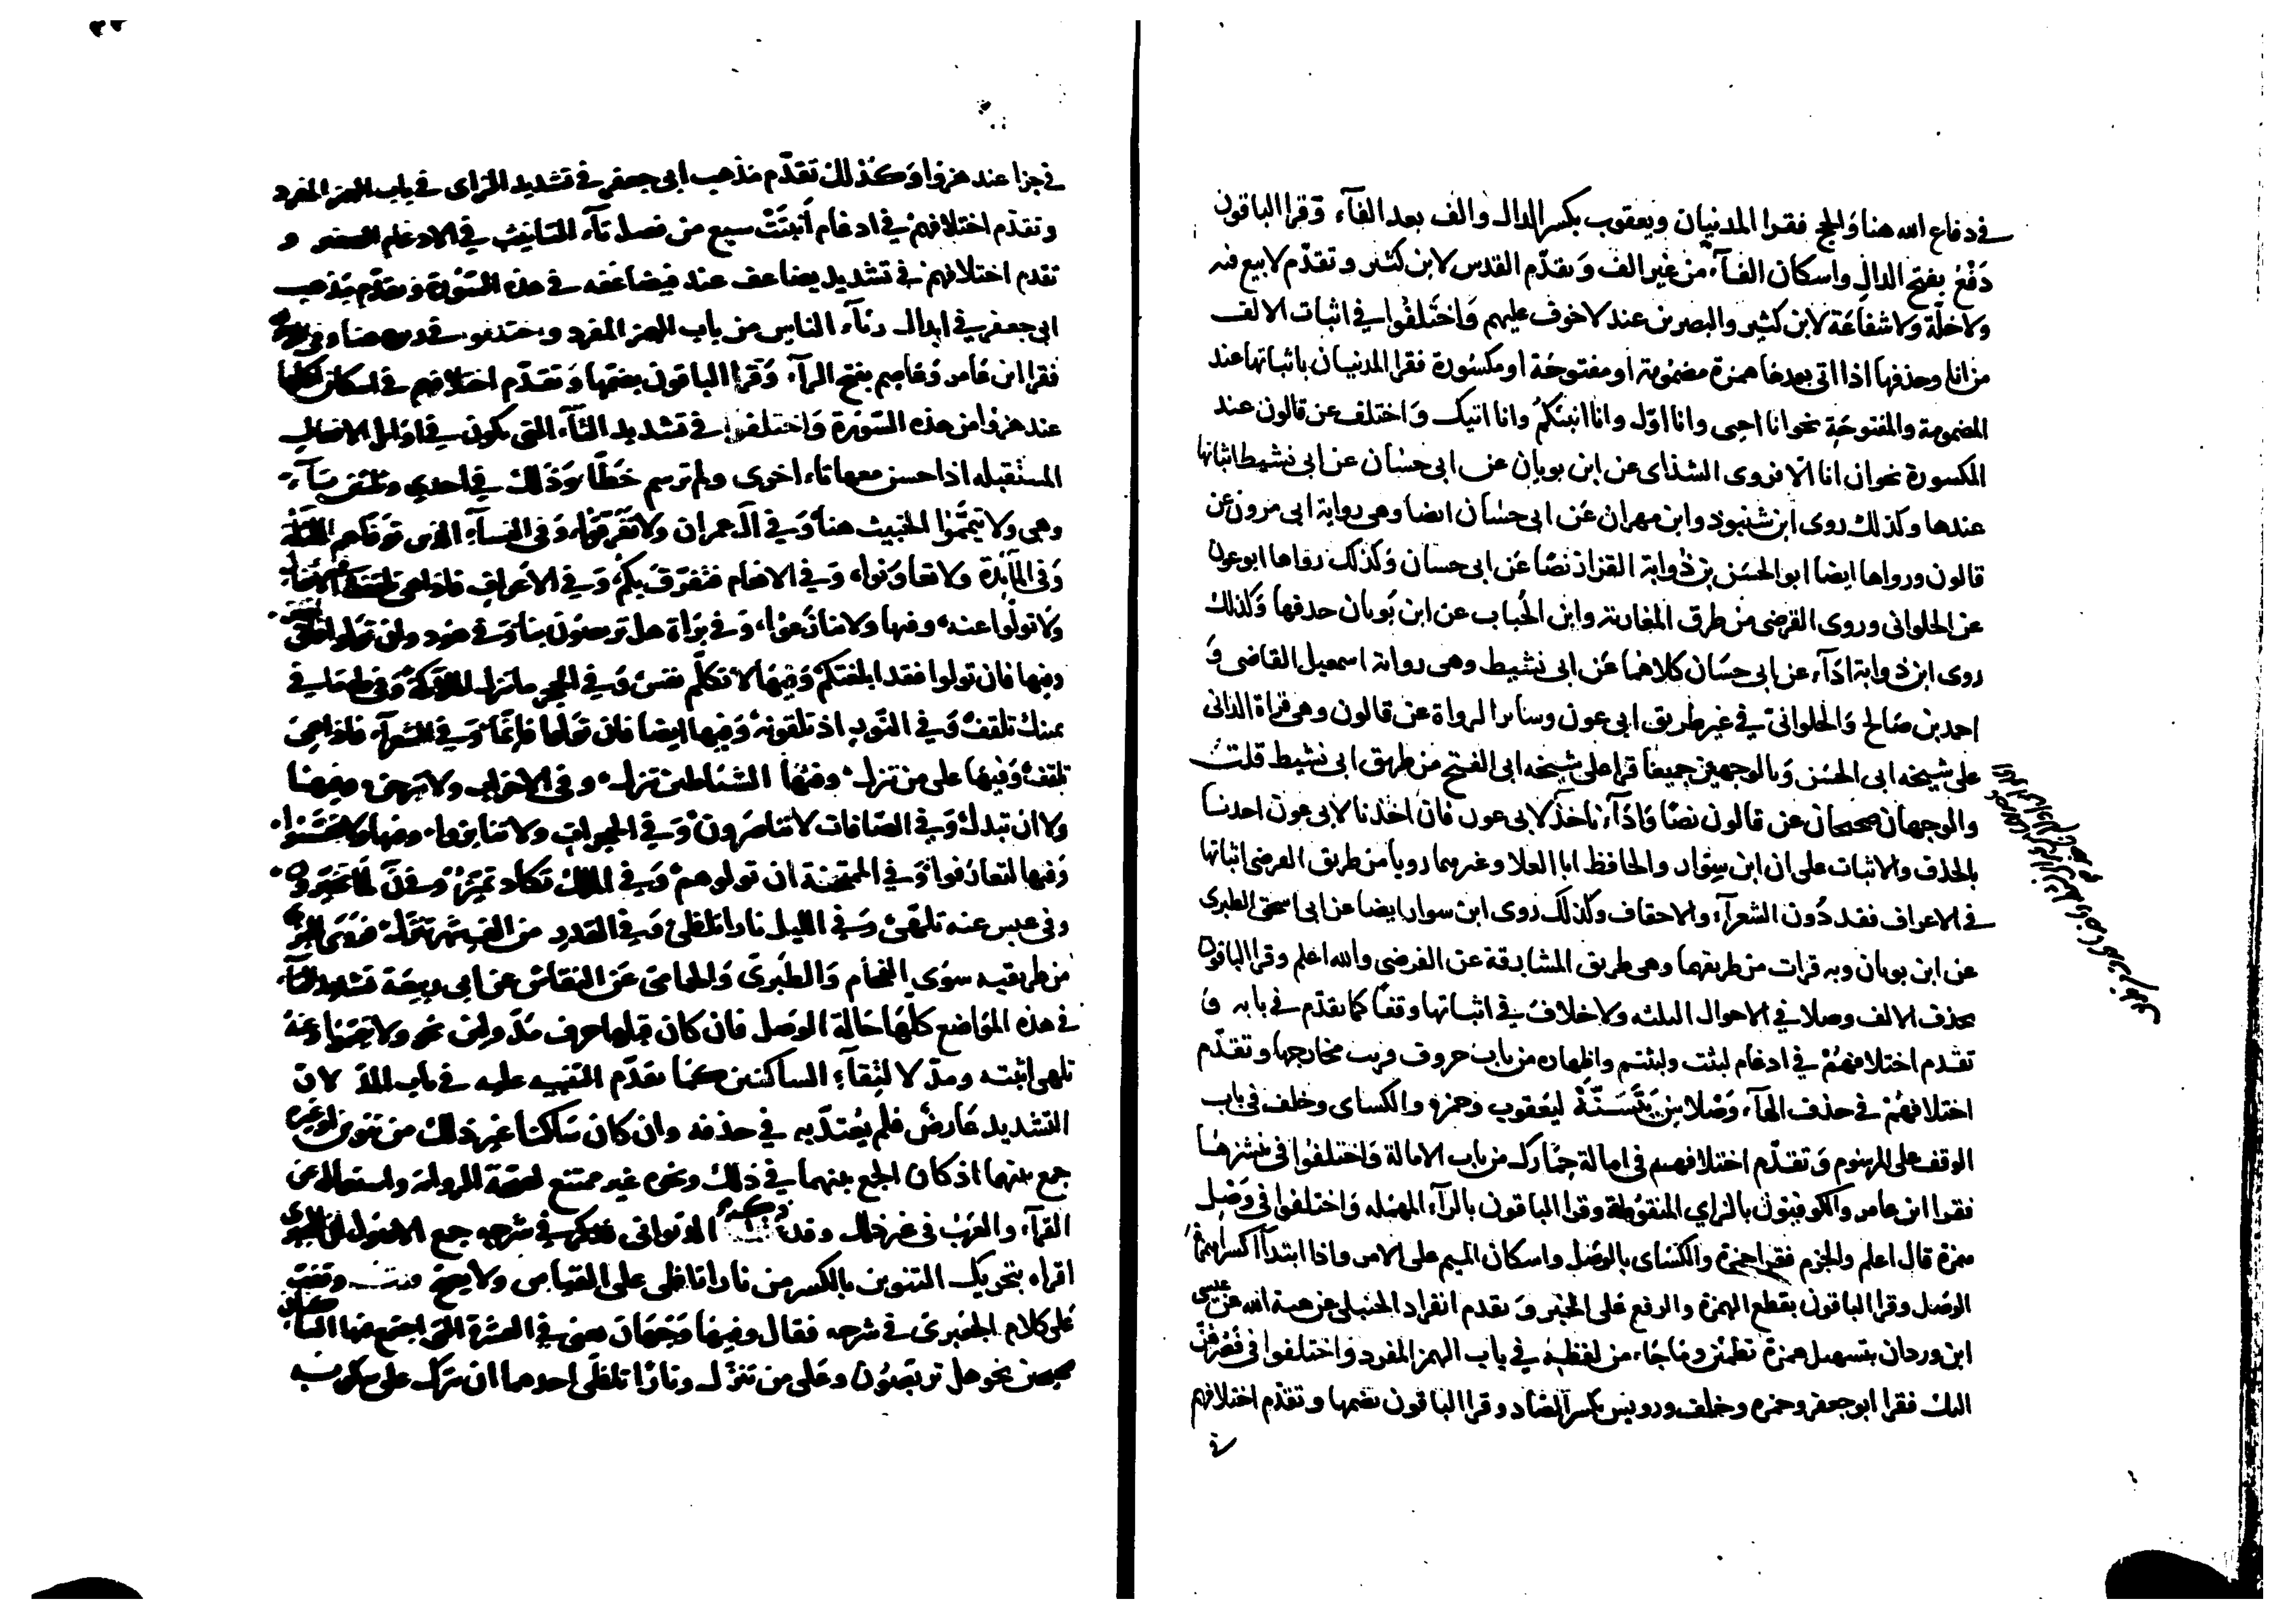 في دفاع الله هنا والحج فقرا المدنيان ويعقوب بكسر الدال والف بعد الفآء وقرا الباقون
دَفْعُ بفتح الدال واسكان الفآء من غير الف وتقدّم القدس لابن كثير وتقدّم لا بيع فيه
ولا خلّة ولا شفاعة لابن كثير والبصريين عند لا خوف عليهم واختلفوا في اثبات الالف
من انا وحذفها اذا اتى بعدها همزة مضمومة او مفتوحة او مكسورة فقرا المدنيان باثباتها عند
المضمومة والمفتوحة نحو انا احيى وانا اوّل وانا انبئكم وانا اتيك واختلف عن قالون عند
المكسورة نحو ان انا الّا فروى الشذاى عن ابن بويان عن ابى حسّان عن ابى نشيط اثباتها
عندها وكذلك روى ابن شنبوذ وابن مهران عن ابى حسّان ايضا وهى رواية ابى مرون عن
قالون ورواها ايضا ابو الحسن بن ذوابة القزاز نصّا عن ابى حسان وكذلك رواها ابو عون
عن الحلوانى وروى الفرضى من طرق المغاربة وابن الحباب عن ابن بويان حذفها وكذلك
روى ابن ذوابة اداء عن ابى حسّان كلاهما عن ابى نشيط وهى رواية اسمعيل القاضى و
احمد بن صالح والحلوانىّ في غير طريق ابى عون وسائر الرواة عن قالون وهى قراة الدانى
على شيخه ابى الحسن وبالوجهين جميعا قرا على شيخه ابى الفتح من طريق ابى نشيط قلت
والوجهان صحيحان عن قالون نصّا وادآء ناخذ لابى عون فان اخذنا لابى عون اخذنا
بالحذف والاثبات على ان ابن سوار والحافظ ابا العلا وغيرهما رويا من طريق الفرضى اثباتها
في الاعراف فقد دون الشعرآء والاحقاف وكذلك روى ابن سوار ايضا عن ابى اسحق الطبرى
عن ابن بويان وبه قرات من طريقهما وهى طريق المشارقة عن الفرضى والله اعلم وقرا الباقون
بحذف الالف وصلا في الاحوال الثلثه ولا خلاف في اثباتها وقفا كما تقدّم في بابه و
تقدم اختلافهم في ادغام لبثت ولبثتم واظهاره من باب حروف قربت مخارجها وتقدّم
اختلافهم في حذف الهآء وصلا من يتسنّه ليعقوب وحمزه والكساى وخلف في باب
الوقف على المرسوم وتقدّم اختلافهم في امالة حمارك من باب الامالة واختلفوا في ننشزها
فقرا ابن عامر والكوفيون بالزاي المنقوطة وقرا الباقون بالرآء المهمله واختلفوا في وصل
همزة قال اعلم والجزم فقرا حمزة والكساى بالوصل واسكان الميم على الامر واذا ابتدآ كسرا همزة
الوصل وقرا الباقون بقطع الهمزة والرفع على الخبر وتقدم انفراد الحنبلى عن هبة الله عن عيسى
ابن وردان بتسهيل همزة تطمئن وما جاء من لفظه في باب الهمز المفرد واختلفوا في فصرهن
اليك فقرا ابو جعفر وحمزه وخلف ورويس بكسر الصاد وقرا الباقون بضمها وتقدّم اختلافهم
في
في جزا عند هزوا وكذلك تقدّم مذهب ابى جعفر في تشديد الزاى في باب الهمز المفرد
وتقدّم اختلافهم في ادغام انبتت سبع من فصل تآء التانيث في الادغام الصغير و
تقدم اختلافهم في تشديد يضاعف عند فيضاعفه في هذه السورة وتقدّم مذهب
ابى جعفر في ابدال رئآء الناس من باب الهمز المفرد واختلفوا في ربوة هنا وفى
فقرا ابن عامر وعاصم بفتح الرآء وقرا الباقون بضمّها وتقدّم اختلافهم في اسكان اكلها
عند هزوا من هذه السّورة واختلفوا في تشديد التآء التى تكون في اوايل الافعال
المستقبله اذا حسن معها تاء اخرى ولم ترسم خطّا وذلك في احدى وثلثين تآء
وهى ولا تيمّموا الخبيث هنا وفي آل عمران ولا تفرّقوا وفى النسآء الذين توفّاهم
وفى المآئدة ولا تعاونوا وفي الانعام فتفرّق بكم وفي الاعراف فاذا هى تلقف
ولا تولّوا عنه وفيها ولا تنازعوا وفي براة هل تربصون بنا وفي هود وان تولوا
وفيها فان تولوا فقد ابلغتكم وفيها لا تكلّم نفس وفي الحجر ما تنزل الملئكة وفى طه ما في
يمينك تلقف وفي النّور اذ تلقونه وفيها ايضا فان تولوا فانّما وفي الشعرآء فاذا هى
تلقف وفيها على من تنزل وفيها الشياطين تنزل وفي الاحزاب ولا تبرجن وفيها
ولا ان تبدل وفي الصّافات لا تناصرون وفي الحجرات ولا تنابزوا وفيها ولا تجسّسوا
وفيها لتعارفوا وفي الممتحنة ان تولوهم وفي الملك تكاد تميّز وفي ن لما تخيّرون
وفى عبس عنه تلهّى وفي الليل نارا تلظى وفي القدر من الف شهر تنزل فروى البزى
من طريقيه سوى الفحّام والطبرى والحمامى عن النقاش عن ابى ربيعة تشديد التآء
في هذه المواضع كلّها حالة الوصل فان كان قبلها حرف مدّ ولين نحو ولا تيمموا وعنه
تلهى اثبته ومدّ لالتقآء الساكنين كما تقدّم التنبيه عليه في باب المدّ لان
التشديد عارض فلم يُعتدّ به في حذفه وان كان ساكنا غير ذلك من تنوين او غيره
جمع بينهما اذ كان الجمع بينهما في ذلك ونحوه غير ممتنع لصحّة الرواية واستعماله عن
القرآء والعرب في غير ذلك وقد ذكر الديوانى في شرحه جمع الاصول ان الجعبرى
اقراه بتحريك التنوين بالكسر من نارا تلظى على القياس ولا يصحّ وقفت
على كلام الجعبرىّ في شرحه فقال وفيها وجهان يعنى في العشرة التى اجتمع فيها الساكنان
صحيحين نحو هل تربصون وعلى من تنزل ونارا تلظّى احدهما ان يترك على سكونه